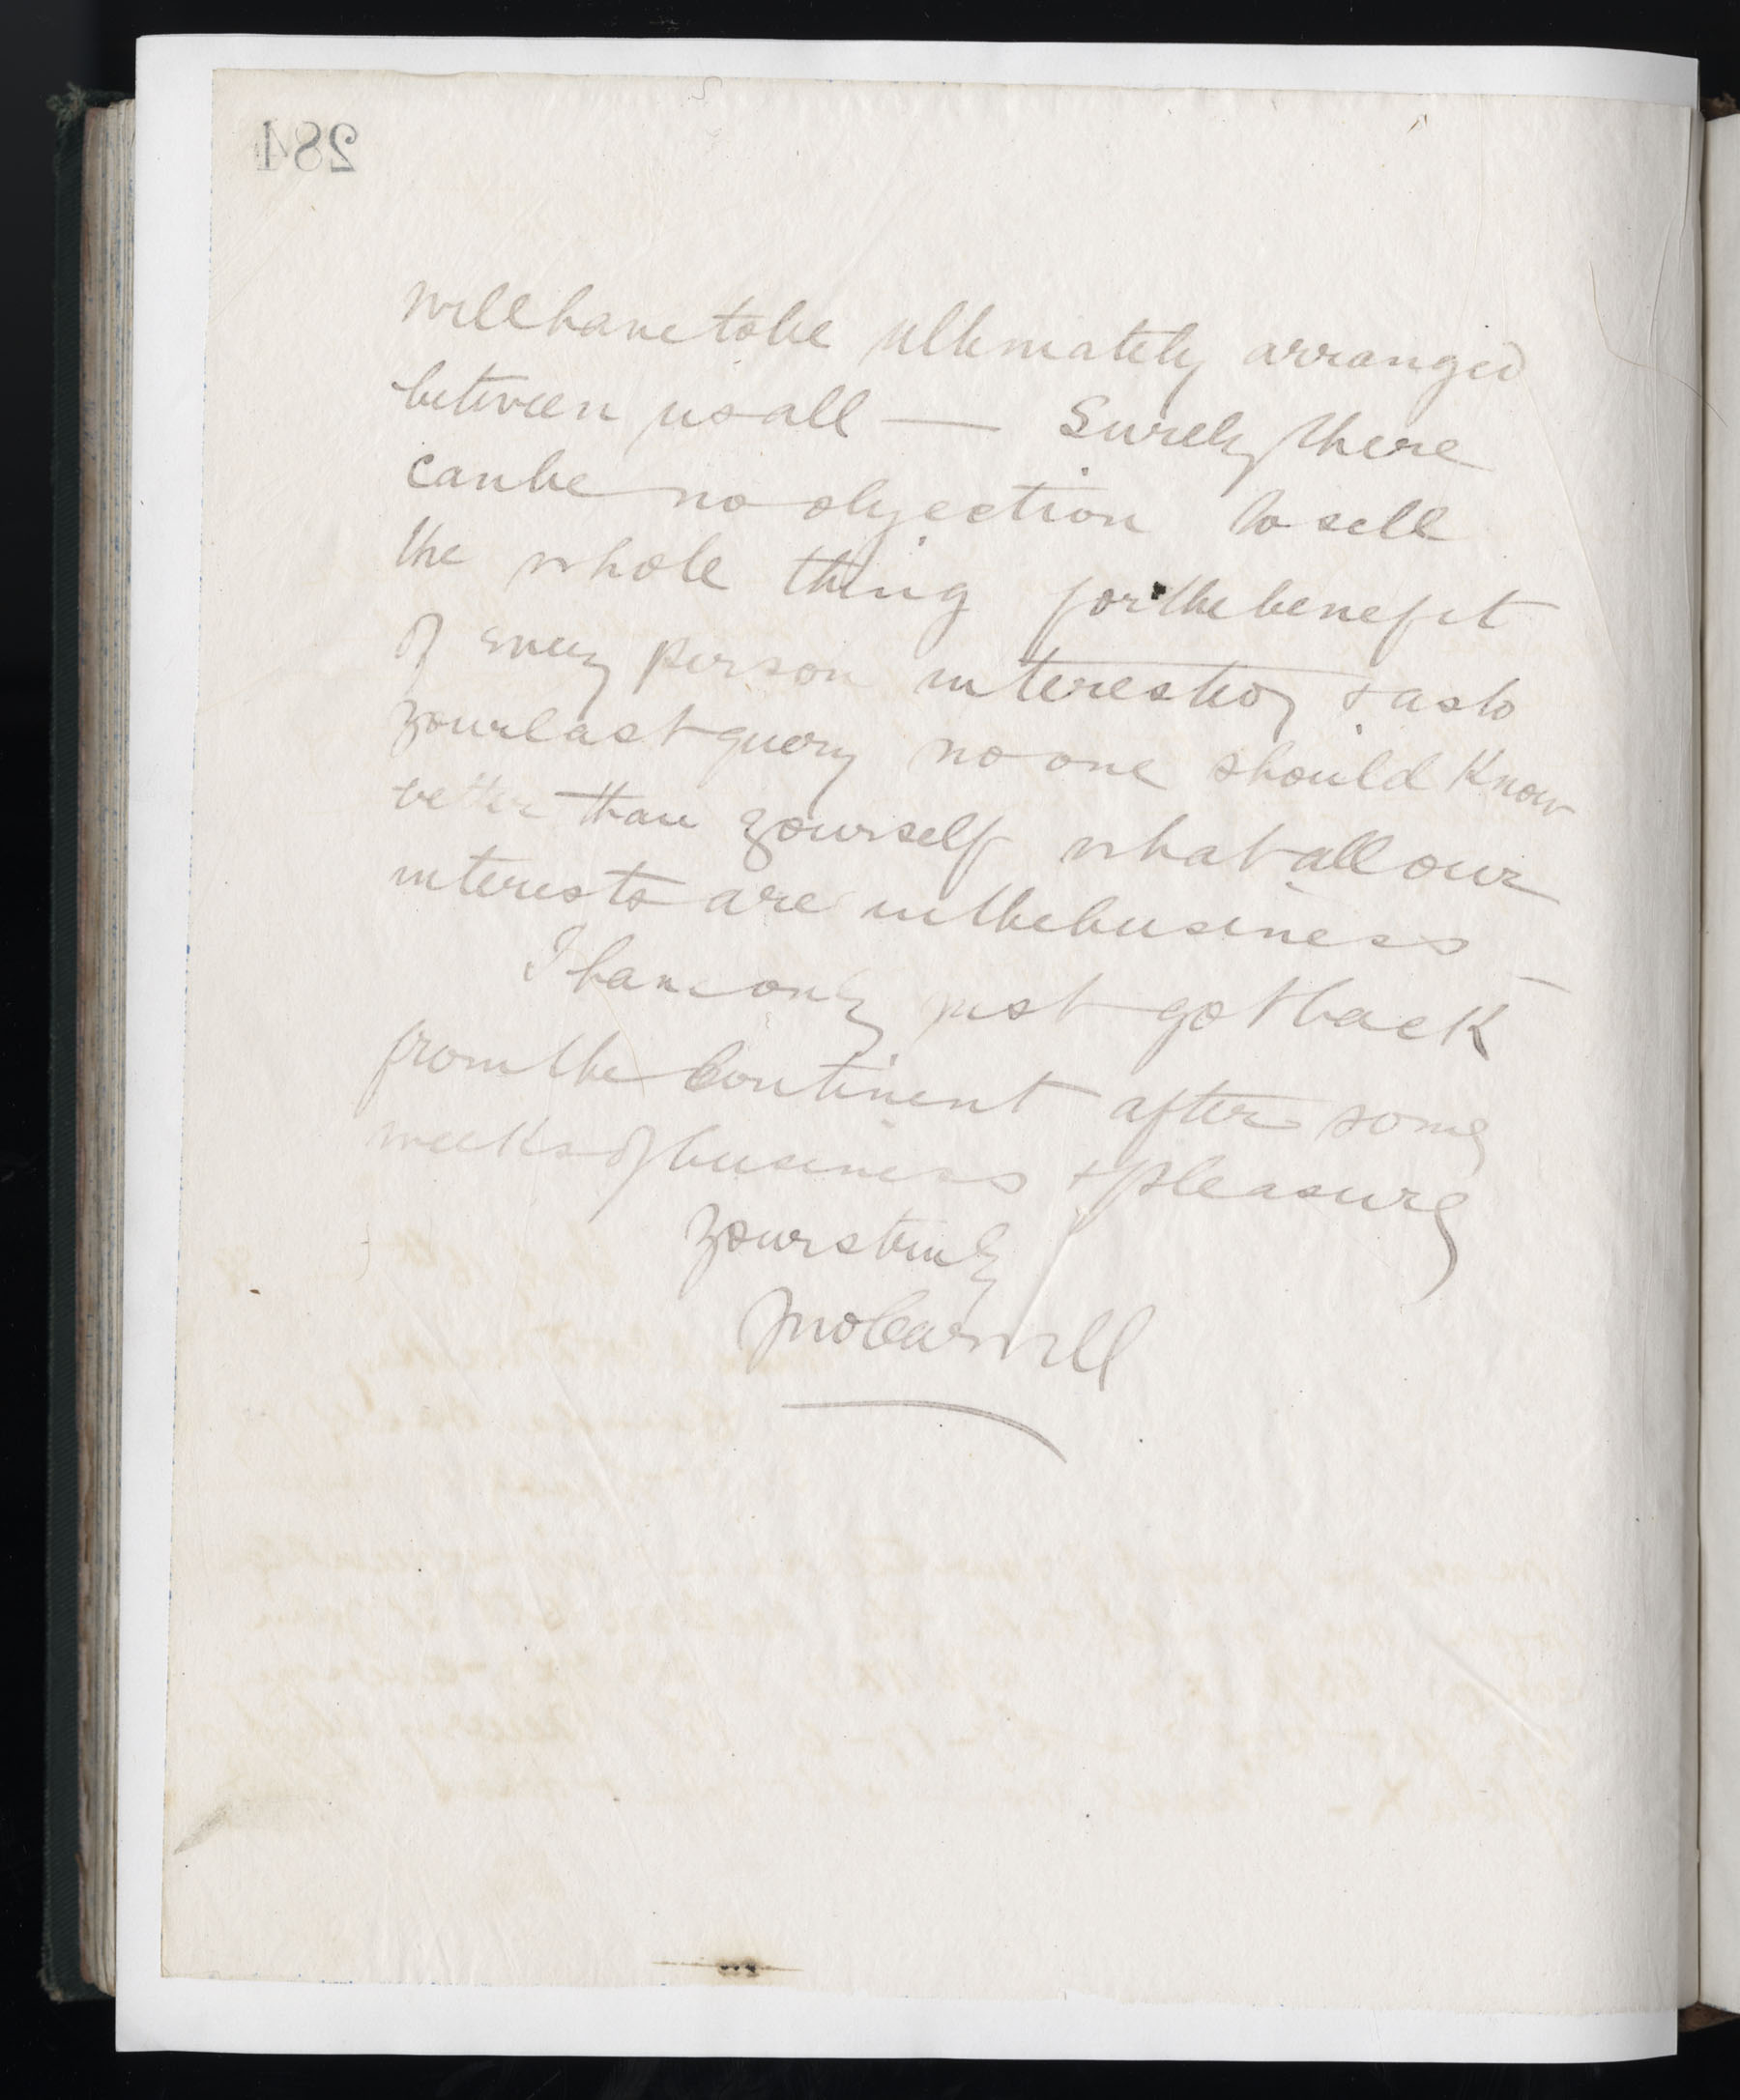 284
will have to be ultimately arranged
between us all — Surely there
can be no objection to sell
the whole thing for the benefit
of every person interested & as to
your last query no one should know
better than yourself what all our
interests are in the business —
I have only just got back
from the Continent after some
weeks of business & pleasure
Yours truly
Jno Carvill